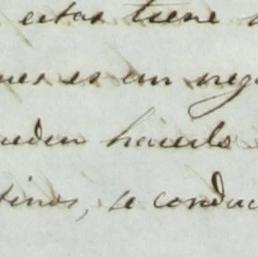 estas tiene
es un neg
ueden hacerlo
tinos, se conduc